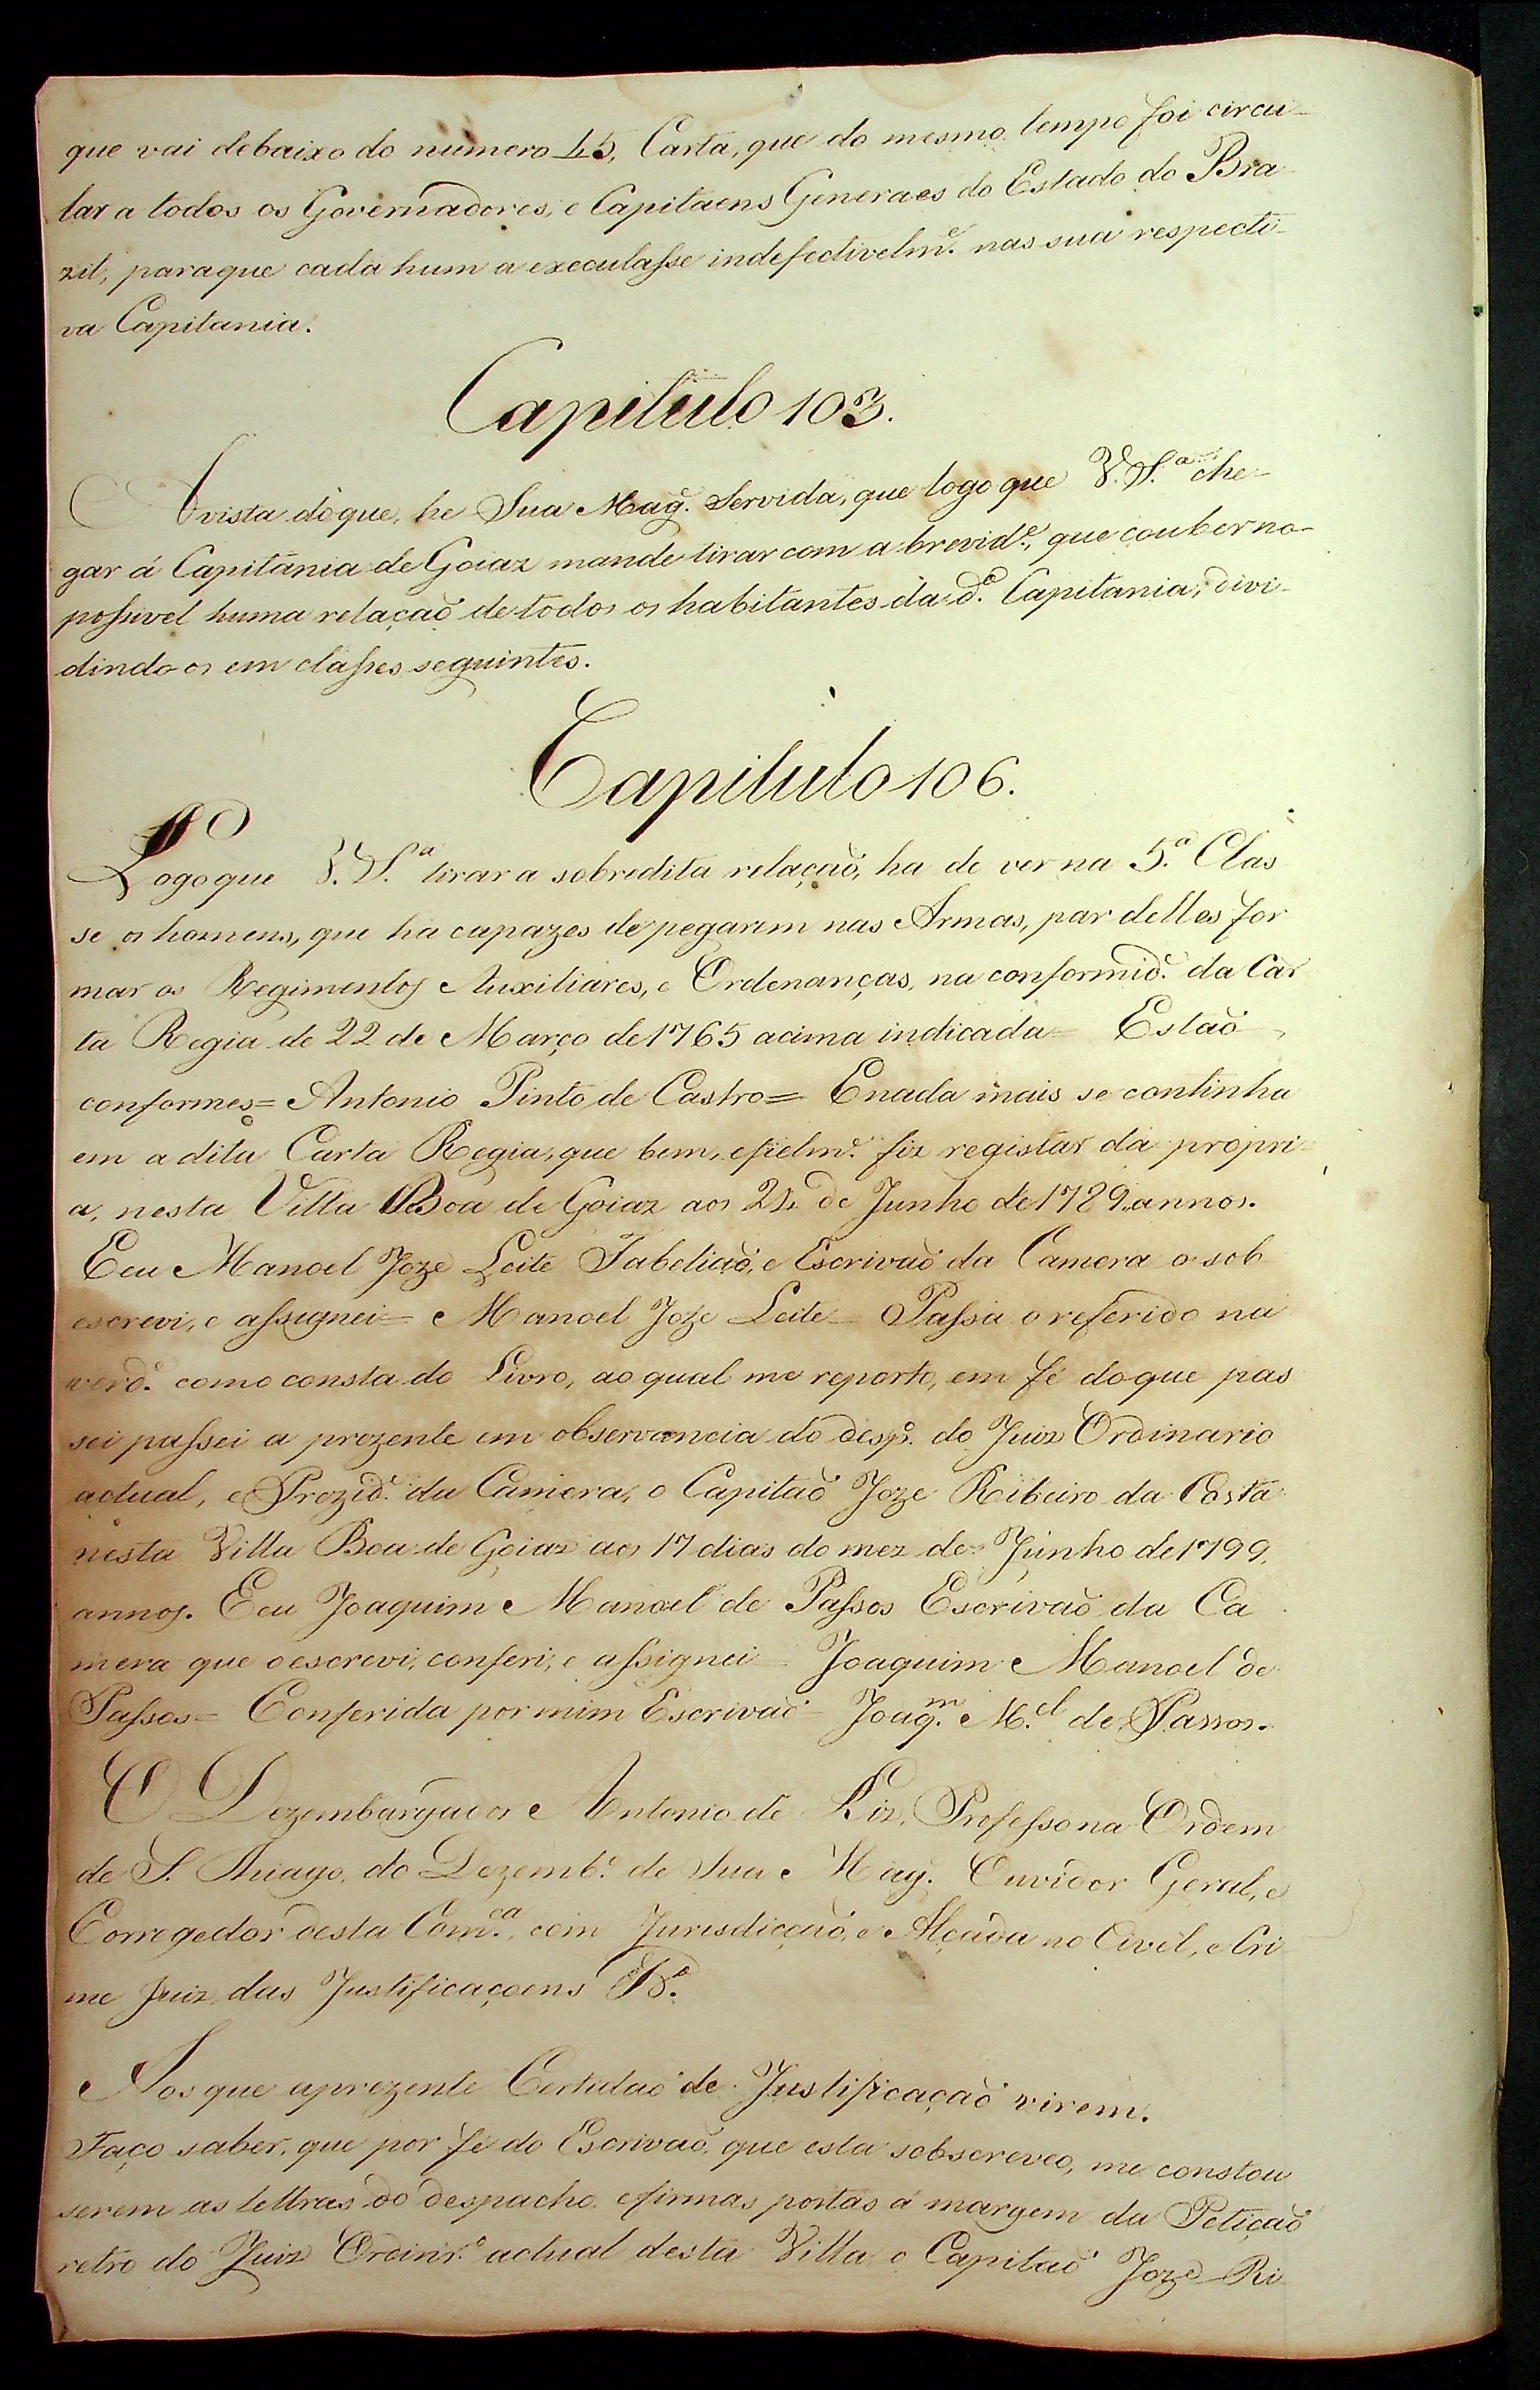 que vai debaixo do numero 45, Carta, que do mesmo tempo foi circu-
lar a todos os Governadores, e Capitaens Generaes do Estado do Bra-
zil, paraque cada hum a executasse indefectivelm.e nas sua respecti-
va Capitania.
Capitulo 103.
A vista doque, he Sua Mag.e Servida, que logo que V. S.a che-
gar á Capitania de Goiaz mande tirar com a brevid.e, que couber no
possivel huma relação de todos os habitantes da d.a Capitania, divi-
dindo os em classes seguintes.
Capitulo 106.
Logo que V. S.a tirar a sobredita relação, ha de ver na 5.a Clas
se os homens, que ha capazes de pegarem nas Armas, par delles for
mar os Regimentos Auxiliares, e Ordenanças, na conformid.e da Car
ta Regia de 22 de Março de 1765 acima indicada = Estaõ
conformes = Antonio Pinto de Castro = Enada mais se continha
em a dita Carta Regia, que bem, efielm.e fiz registar da propri-
a, nesta Villa Boa de Goiaz aos 24 de Junho de 1789 annos.
Eeu Manoel Joze Leite Tabeliaõ, e Escrivaõ da Camera o sob
escrevi, e assignei = Manoel Joze Leite = Passa o referido na
verd.e como consta do Livro, ao qual me reporto, em fé doque pas
sei passei a prezente em observancia do desp.o do Juiz Ordinario
actual, e Prezid.e da Camera, o Capitaõ Joze Ribeiro da Costa
nesta Villa Boa de Goiaz aos 17 dias do mez de Junho de 1799
annos. Eeu Joaquim Manoel de Passos Escrivaõ da Ca
mera que o escrevi, conferi, e assignei = Joaquim Manoel de
Passos = Conferida por mim Escrivaõ = Joaq.m M.el de Passos.
O Dezembargador Antonio de Liz, Professo na Ordem
de S. Thiago, do Dezemb.o de Sua Mag.e Ouvidor Geral, e
Corregedor desta Com.ca, com Jurisdicçaõ, e Alçada no Civel, e Cri
me Juiz das Justificaçoens
Aos que aprezente Certidaõ de Justificaçaõ virem.
Faço saber, que por fé do Escrivaõ, que esta sobscreveo, me constou
serem as lettras do despacho, efirmas postas á margem da Petiçaõ
retro do Juiz Ordinr.o actual desta Villa o Capitaõ Joze Ri